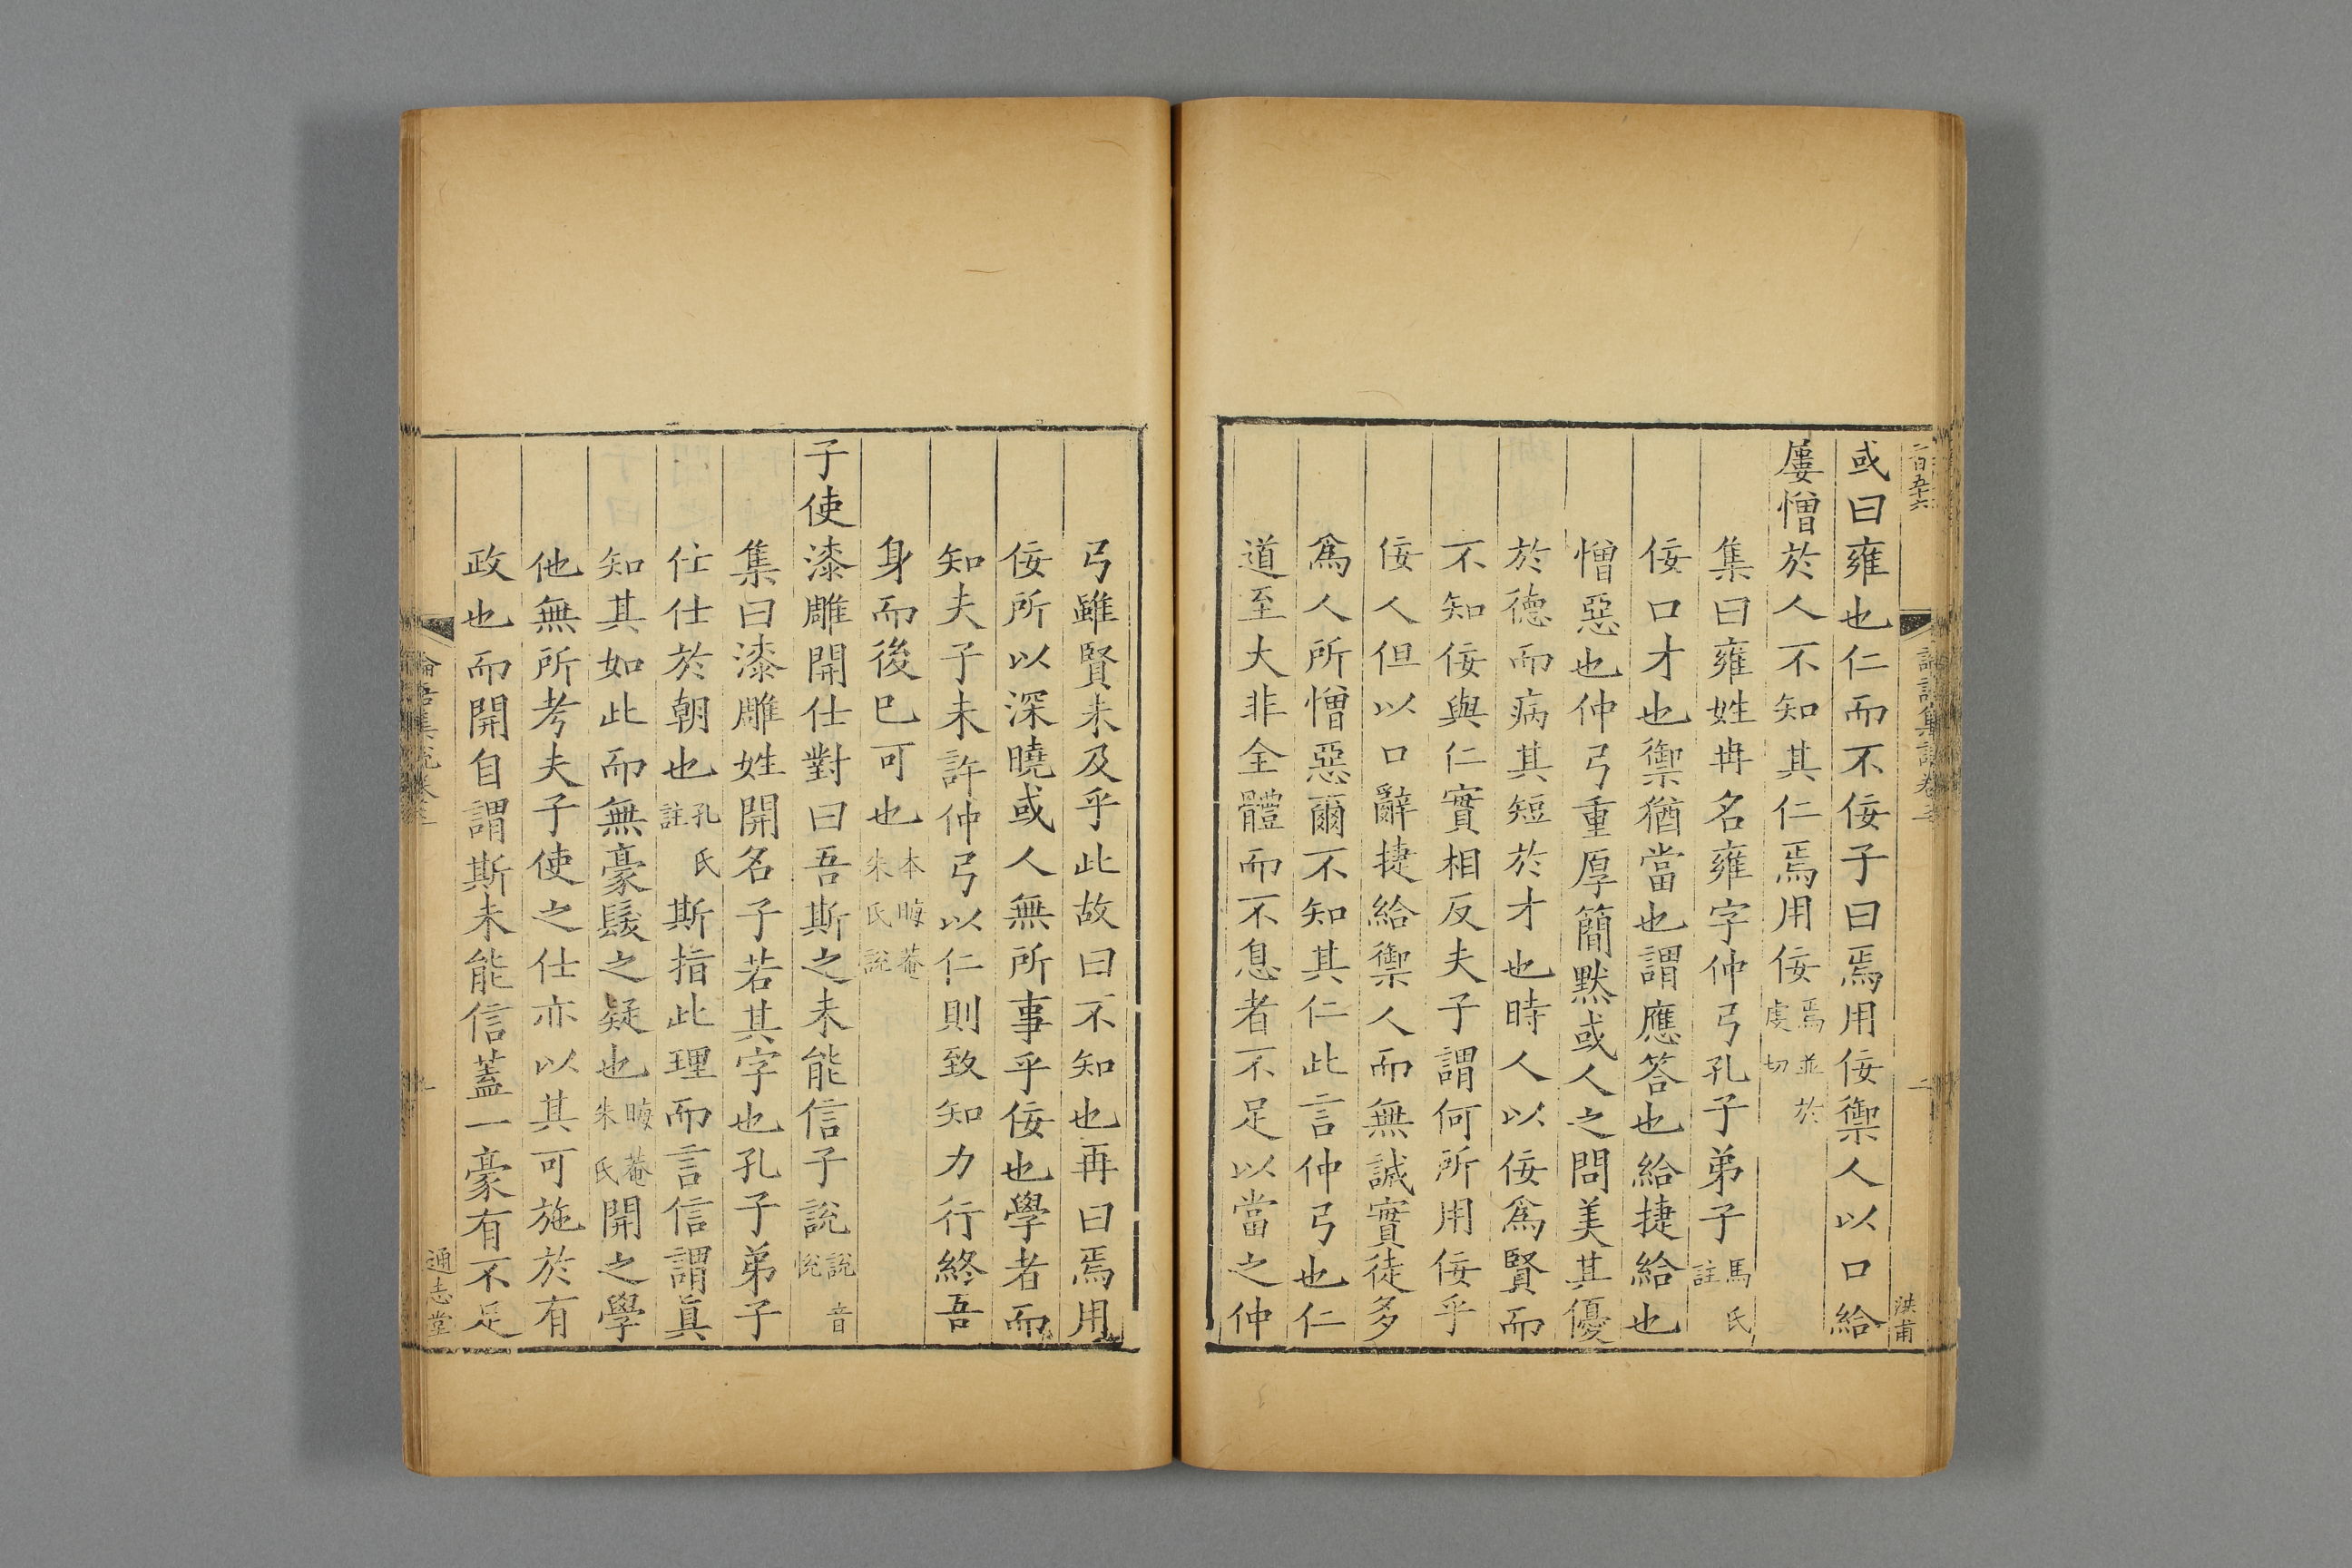 二百五十六
洪甫
或曰雍也仁而不佞子曰焉用佞禦人以口給
屢憎於人不知其仁焉用佞焉並於虔切
集曰雍姓冉名雍字仲弓孔子弟子馬氏註
佞口才也禦猶當也謂應答也給捷給也
憎惡也仲弓重厚簡默或人之問美其優
於德而病其短於才也時人以佞爲賢而
不知佞與仁實相反夫子謂何所用佞乎
佞人但以口辭捷給禦人而無誠實徒多
爲人所憎惡爾不知其仁此言仲弓也仁
道至大非全體而不息者不足以當之仲
弓雖賢未及乎此故曰不知也再曰焉用
佞所以深曉或人無所事乎佞也學者而
知夫子未許仲弓以仁則致知力行終吾
身而後已可也本晦菴朱氏說
子使漆雕開仕對曰吾斯之未能信子說說音悅
集曰漆雕姓開名子若其字也孔子弟子
仕仕於朝也孔氏註斯指此理而言信謂眞
知其如此而無豪髮之疑也晦菴朱氏開之學
他無所考夫子使之仕亦以其可施於有
政也而開自謂斯未能信蓋一豪有不足
論語集說卷三
通志堂